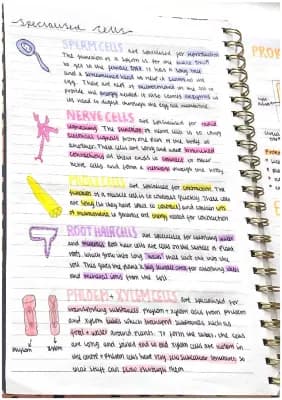 Specialised Cells
SPERM CELLS are specialised for reproduction
The function of a sperm is for the male DNA
to get to the female DNA. It has a long tail
and a streamlined head to help it swim to the
egg. There are lots of mitochondria in the cell to
provide the energy needed. It also carries enzymes in
its head to digest through the egg cell membrane.
NERVE CELLS are specialised for rapid
signalling. The function of nerve cells is to carry
electrical signals from one part of the body to
another. These cells are long and have branched
connections at their ends to connect to other
nerve cells and form a network through the body
MUSCLE CELLS are specialised for contraction. The
function of a muscle cell is to contract quickly. These cells
are long (so they have space to contract) and contain lots
of mitochondria to generate the energy needed for contraction
ROOT HAIR CELLS are specialised for absorbing water
and minerals. Root hair cells are cells on the surface of plant
roots, which grow into long "hairs" that stick out into the
soil. This gives the plant a big surface area for absorbing water
and mineral ions from the soil.
PHLOEM + XYLEM CELLS are specialised for
transporting substances. Phloem + xylem cells form phloem
and xylem tubes which transport substances such as
food + water around plants. To form the tubes, the cells
are long and joined end to end. Xylem cells are hollow in
the centre + Phloem cells have very few subcellular structures so
that stuff can flow through them
phloem
xylem